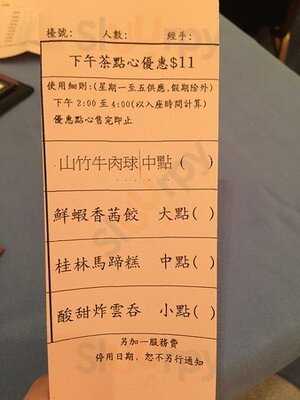 檯號: 人數: 經手:
下午茶點心優惠$11
使用細則:(星期一至五供應,假期除外)
下午 2:00 至 4:00(以入座時間計算)
優惠點心售完即止
山竹牛肉球 中點( )
鮮蝦香茜餃 大點( )
桂林馬蹄糕 中點( )
酸甜炸雲吞 小點( )
另加一服務費
停用日期、恕不另行通知